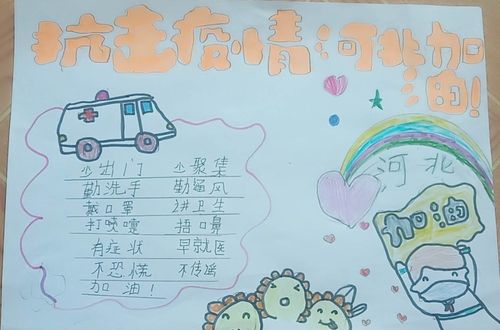 抗击疫情河北加油!
少出门 少聚集
勤洗手 勤通风
戴口罩 讲卫生
打喷嚏 捂口鼻
有症状 早就医
不恐慌 不传谣
加油!
河北
加油